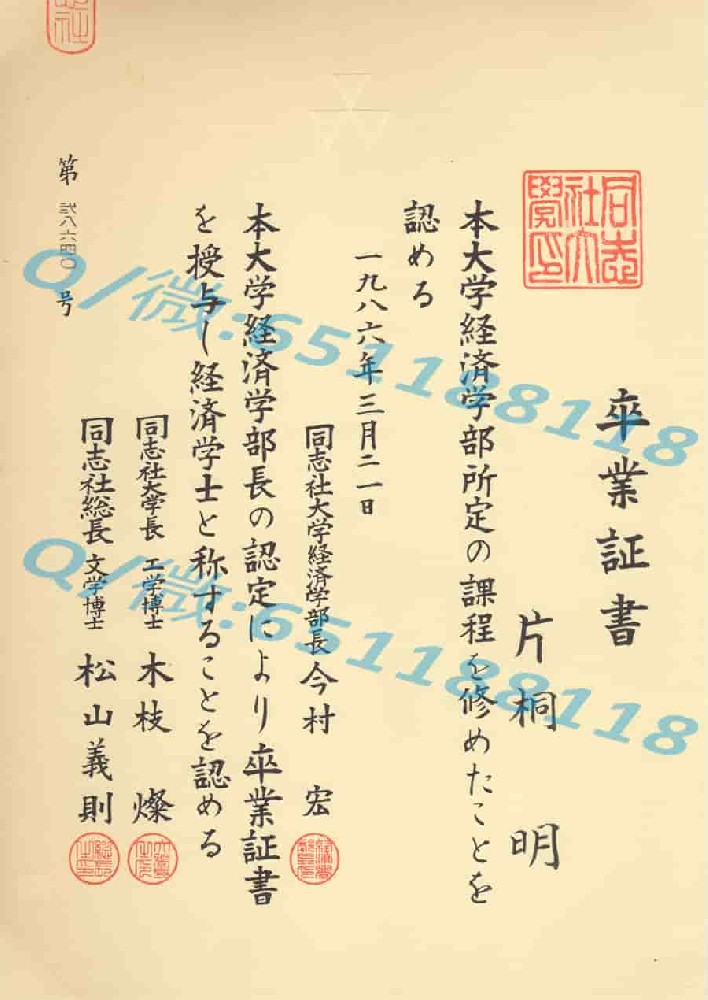 卒業証書
片桐 明
本大学経済学部所定の課程を修めたことを
認める
一九八六年三月二一日
同志社大学経済学部長 今村 宏
本大学経済学部長の認定により卒業証書
を授与し経済学士と称することを認める
同志社大学長 工学博士 木枝 燦
同志社総長 文学博士 松山義則
第 弐八六四〇 号
同志
社大
學印
Q/微:651188118
Q/微:651188118